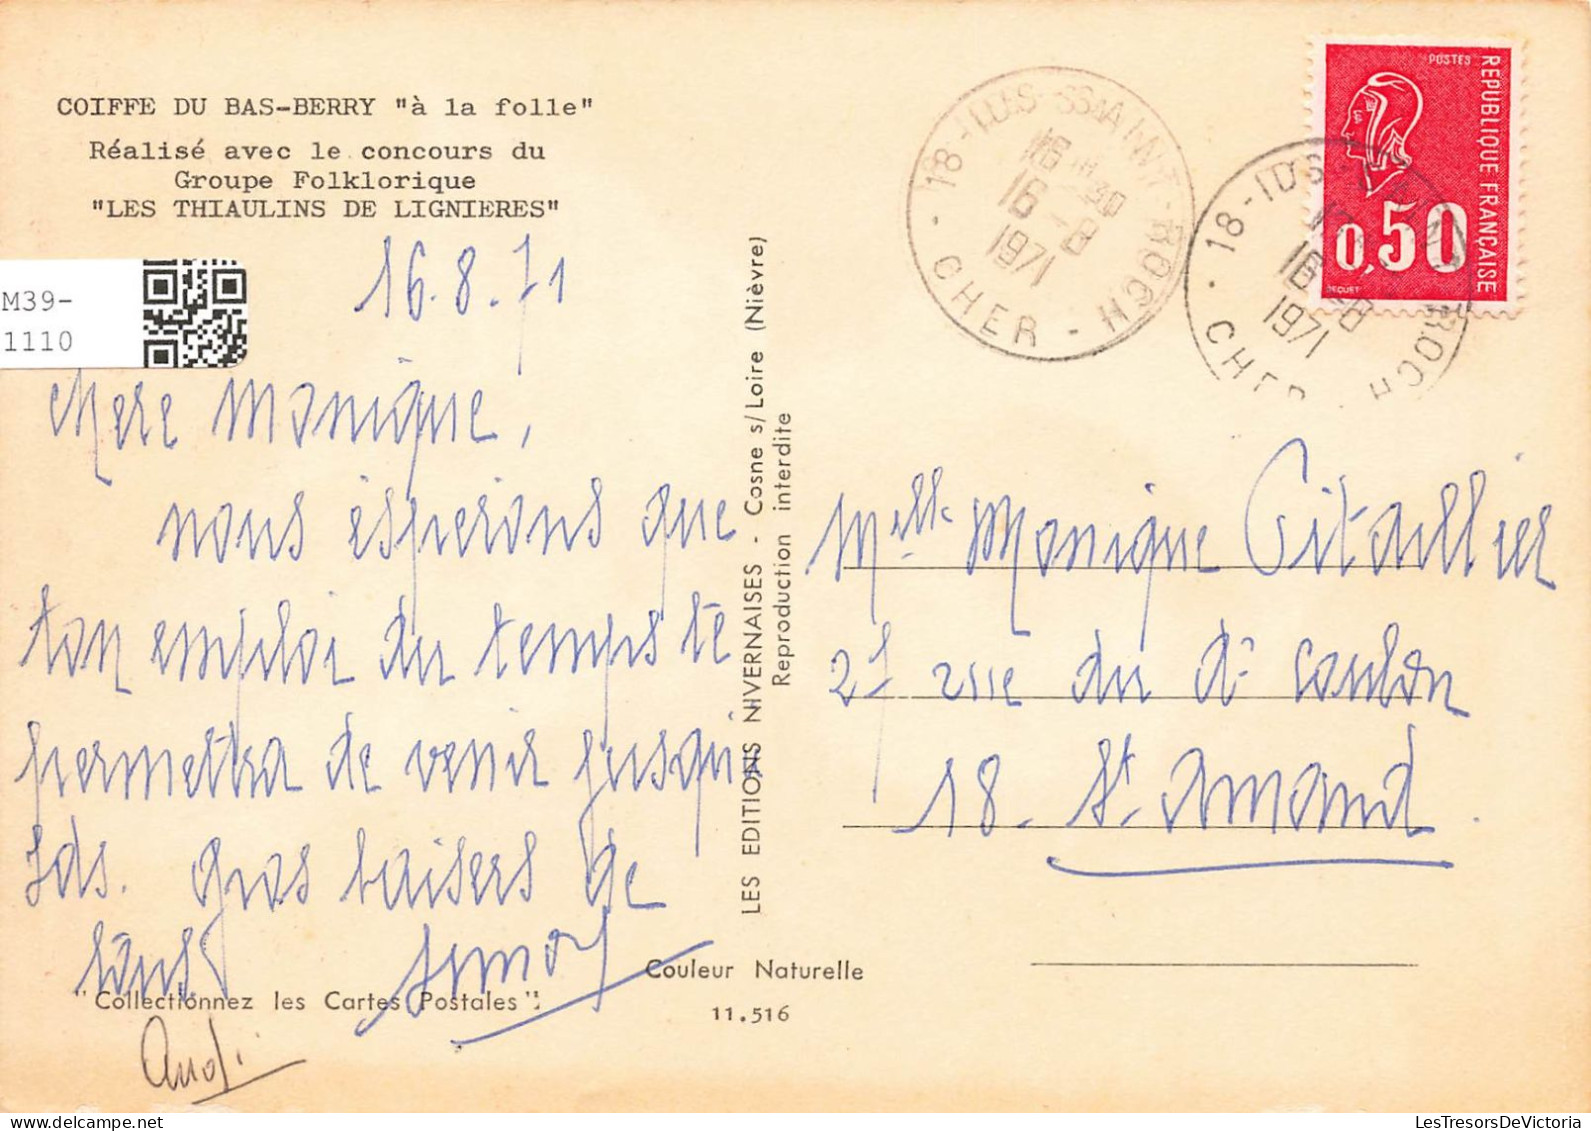 COIFFE DU BAS-BERRY "à la folle"
Réalisé avec le concours du
Groupe Folklorique
"LES THIAULINS DE LIGNIERES"
M39-
1110
16.8.71
chere Monique,
nous espérons que
ton emploi du temps te
permettra de venir jusqu'
Ids. Gros baisers de
tous
"Collectionnez les Cartes Postales"
LES EDITIONS NIVERNAISES - Cosne s/Loire (Nièvre)
Reproduction interdite
Couleur Naturelle
11.516
18 - IDS-SAINT-ROCH
16-8
1971
- CHER -
18 - IDS-SAINT-ROCH
16-8
1971
CHER
POSTES
REPUBLIQUE FRANÇAISE
0,50
BEQUET
Melle Monique Pitaullier
21 rue du Dr Coulon
18. St. Amand.
LesTresorsDeVictoria.com